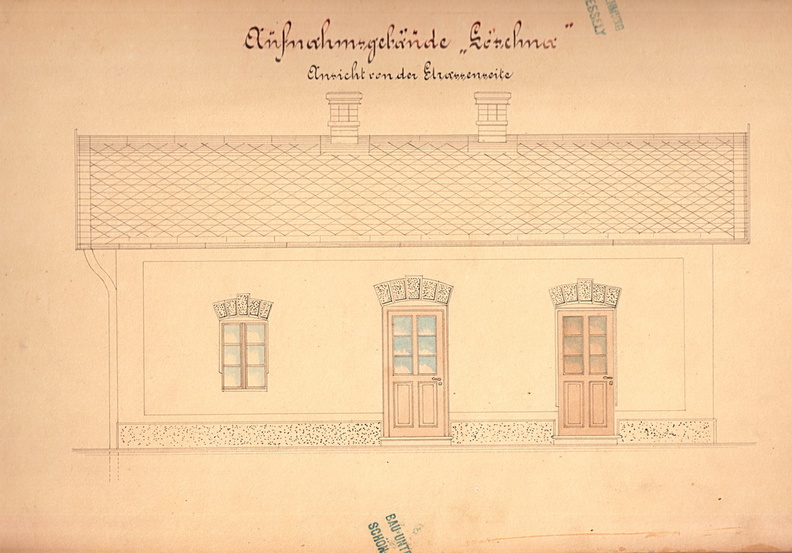 Aufnahmsgebäude „Löschna"
Ansicht von der Strassenseite
BAU-UNT
SCHÖN